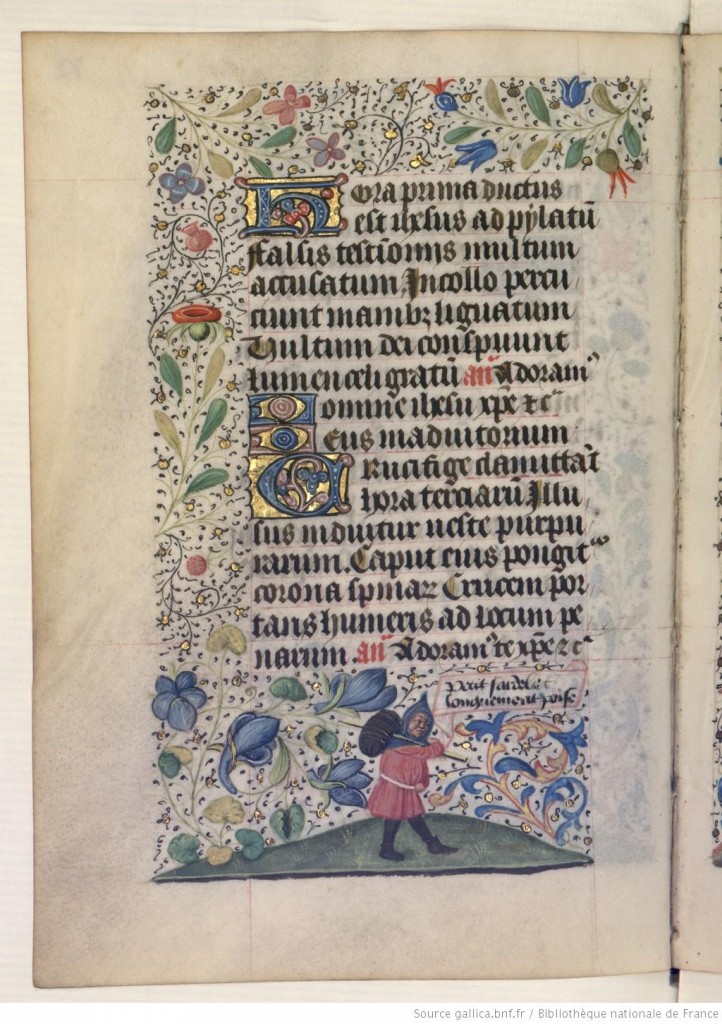 Hora prima ductus
est ihesus ad pylatū
falsis testīoniis multum
accusatum In collo percu
ciunt manibꝫ liguatum
Vultum dei conspuunt
lumen celi gratū an̄ Adoram᾽
Domine ihesu xp̄e ⁊ c᾽
Deus in adiutorium
Crucifige clamitta᷒t
hora terciarū Illu
sus induitur ueste purpu
rarum. Caput eius pongit᾽
corona spinaꝝ Crucem por
tans humeris ad locum pe
narum. an̄ Adoram᾽ te xp̄e ⁊ c᾽
Petit fardel et
longuement poise
Source gallica.bnf.fr / Bibliothèque nationale de France